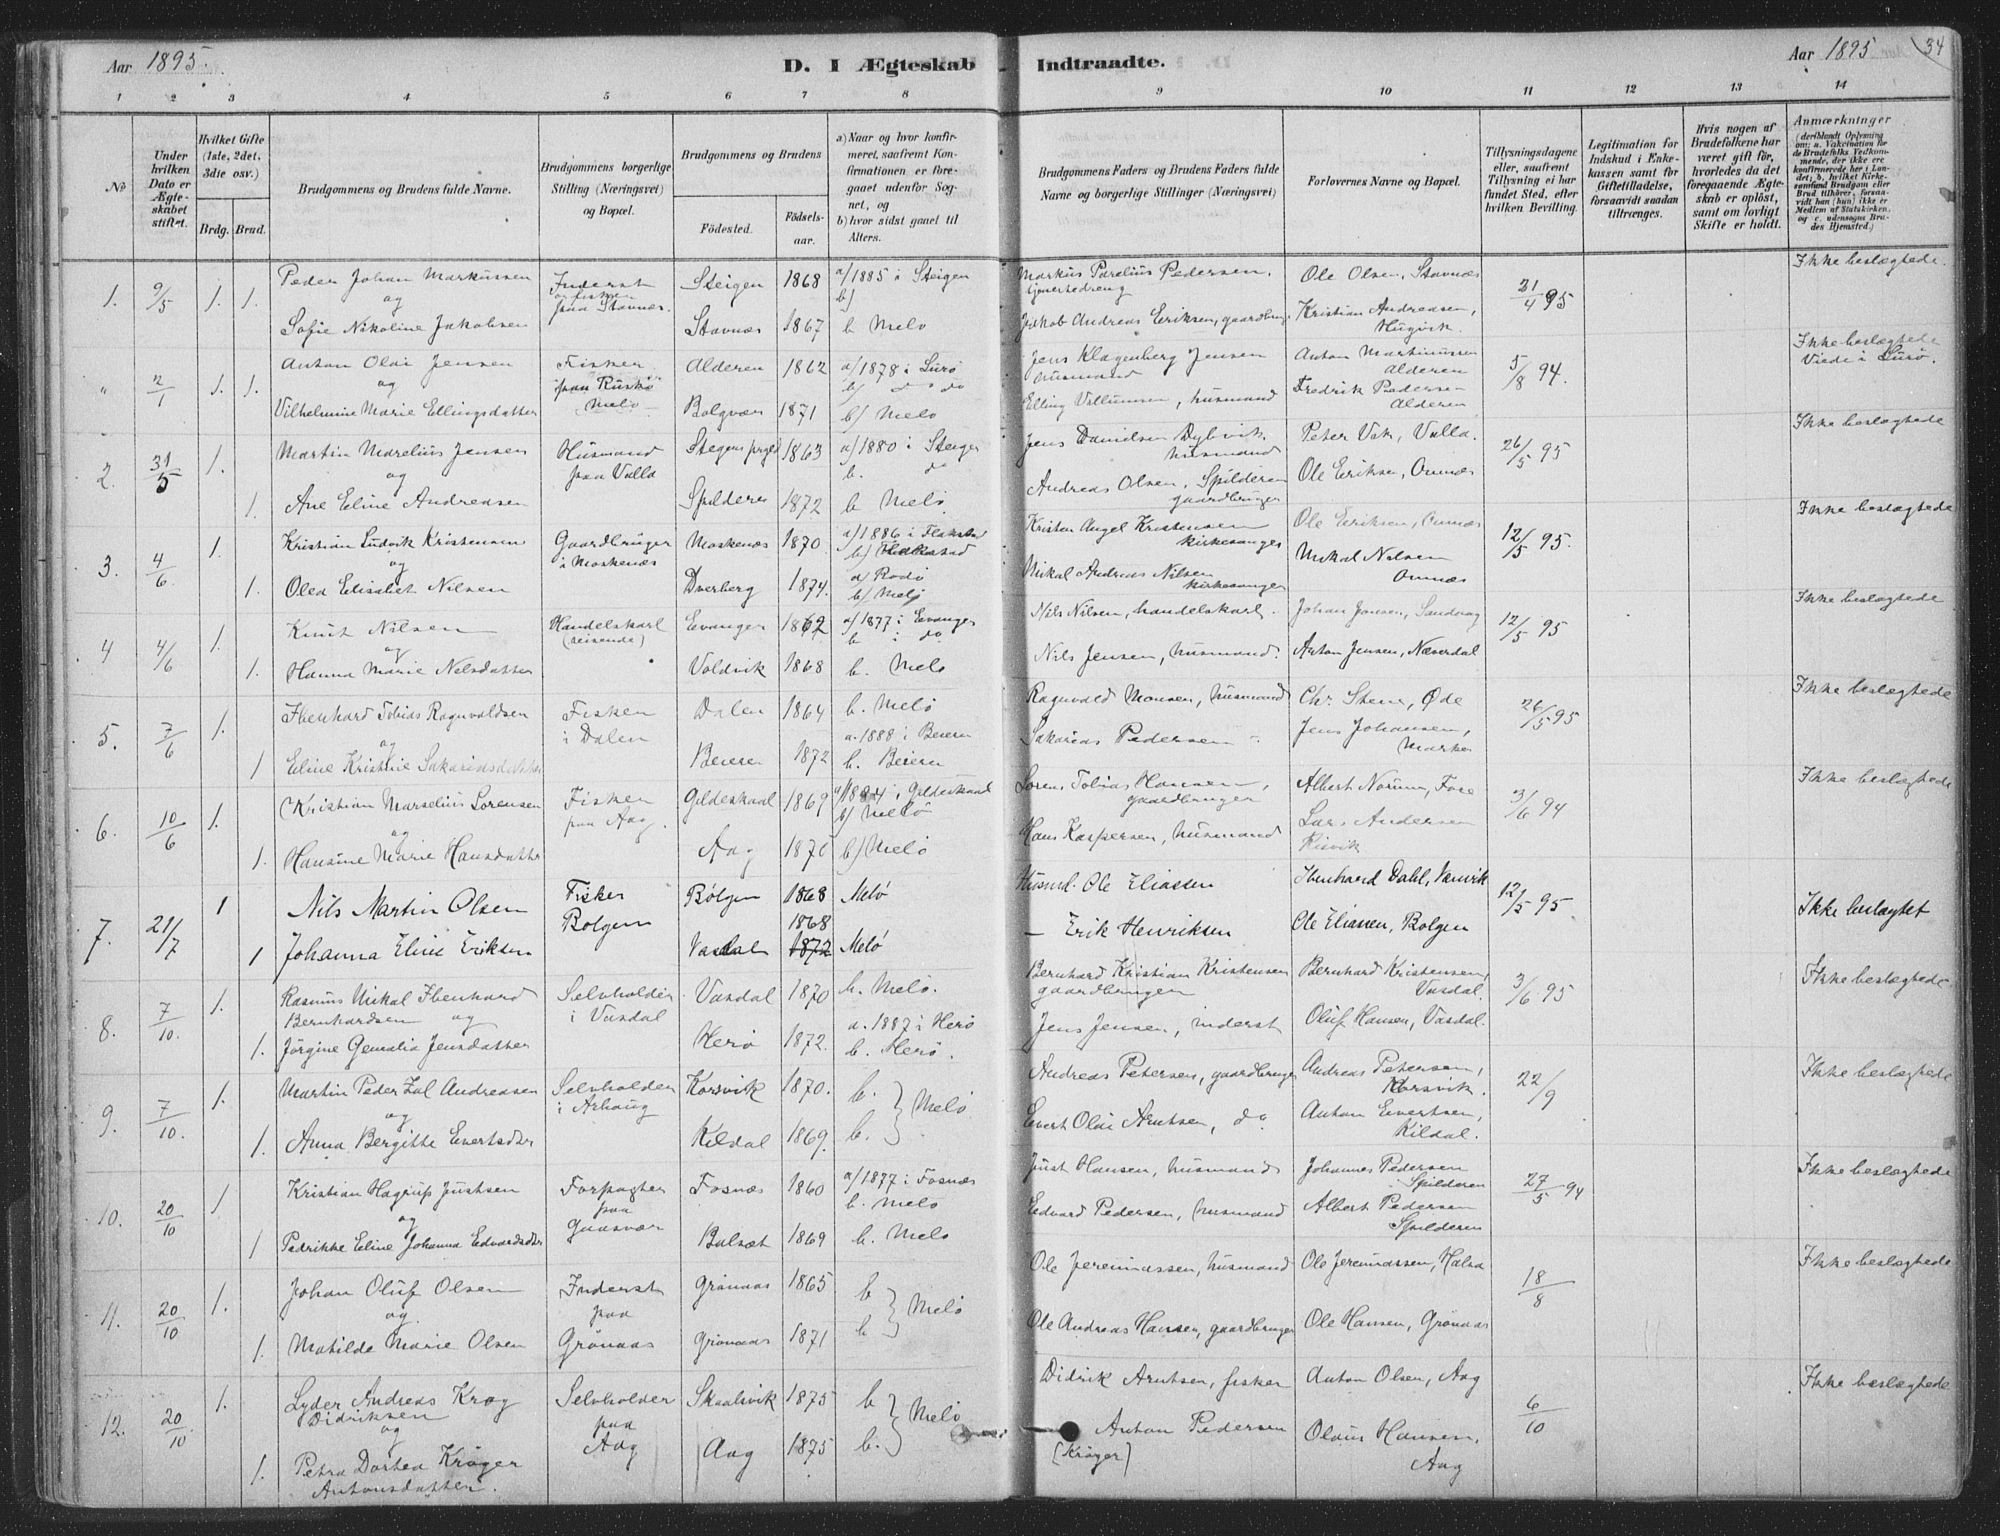 Aar 1895.
D. I Ægteskab Indtraadte.
Aar 1895
34
1 2 3 4 5 6 7 8 9 10 11 12 13 14
No
Under hvilken Dato er Ægteskabet stiftet.
Hvilket Gifte (1ste, 2det, 3die osv.)
Brdg. Brud.
Brudgommens og Brudens fulde Navne.
Brudgommens borgerlige Stilling (Næringsvei) og Bopæl.
Brudgommens og Brudens
Fødested. Fødselsaar.
a) Naar og hvor konfirmeret, saafremt Konfirmationen er foregaaet udenfor Sognet, og
b) hvor sidst gaaet til Alters.
Brudgommens Faders og Brudens Faders fulde Navne og borgerlige Stillinger (Næringsvei)
Forlovernes Navne og Bopæl.
Tillysningsdagene eller, saafremt Tillysning ei har fundet Sted, efter hvilken Bevilling.
Legitimation for Indskud i Enkekassen samt for Giftetilladelse, forsaavidt saadan tiltrænges.
Hvis nogen af Brudefolkene har været gift før, hvorledes da det foregaaende Ægteskab er opløst, samt om lovligt Skifte er holdt.
Anmærkninger (deriblandt Oplysning om: a. Vakcination for de Brudefolks Vedkommende, der ikke ere konfirmerede her i Landet; b. hvilket Kirkesamfund Brudgom eller Brud tilhører, forsaavidt han (hun) ikke er Medlem af Statskirken, og c. udensogns Brudes Hjemsted.)
1. 9/5 1. 1. Peder Johan Markussen Inderst og fisker paa Stavnæs. Steigen 1868 a/1885 i Steigen b/ Markus Parelius Pedersen, Ole Olsen, Stavnæs 21/4 95 Ikke beslægtede.
og
Sofie Nikoline Jakobsen Stavnæs 1867 b Melø Jakob Andreas Eriksen, gaardbrug Kristian Andreasen,
" 2/1 1. 1. Anton Olai Jensen Fisker paa Ruskø Melø Alderen 1862 a/1878 i Lurø b/ do Jens Klagenberg Jensen husmand Anton Martinussen Alderen 5/8 94. Ikke beslægtede Viede i Lurø.
og
Vilhelmine Marie Ellingsdatter Bolgvær 1871 b/ Melø Elling Villumsen, husmand Fredrik Pedersen Alderen
2. 31/5 1. Martin Marelius Jensen Husmand paa Valla Stegens prgld 1863 a/1880 i Steigen b. do Jens Danielsen Dybvik, husmand Peter Vik, Valla. 26/5 95 Ikke beslægtede
og
1. Ane Eline Andreasen Spilderen 1872 b Melø Andreas Olsen, Spilderen gaardbruger Ole Eriksen, Ornæs
3. 4/6 1. Kristian Ludvik Kristensen Gaardbruger i Moskenæs Moskenæs 1870 a/1886 i Flakstad b/ Flakstad Kristen Angel Kristensen kirkesanger Ole Eriksen, Ornæs 12/5 95. Ikke beslægtede
og
1. Olea Elisabet Nilsen Dverberg 1874. a/ Rødø b/ Melø Mikal Andreas Nilsen kirkesanger Mikal Nilsen Ornæs
4 4/6 1. Knut Nilsen Handelskarl (reisende) Evanger 1862 a/1877 i Evanger b i do Nils Nilsen, handelskarl. Johan Jensen, Sandvag 12/5 95 Ikke beslægtede
og
1. Hanna Marie Nilsdatter Valdvik 1868 b. Melø Nils Jensen, husmand. Anton Jensen, Næverdal
5. 7/6 1. Ibenhard Tobias Ragnvaldsen Fisker i Dalen Dalen 1864 b. Melø Ragnvald Monsen, husmand Chr. Stene, Øde 26/5 95 Ikke beslægtede
og
1 Eline Kristine Sakariasdatter Beieren 1872 a. 1888 i Beieren b. Beieren Sakarias Pedersen Jens Johansen,
6. 10/6 1. Kristian Marselius Sørensen Fisker paa Aag. Gildeskaal 1869 a/1884 i Gildeskaal b/ Melø Søren Tobias Hansen, gaardbruger Albert Norum, Fore 3/6 94 Ikke beslægtede
og
1. Hansine Marie Hansdatter Aag 1870 b/ Melø Hans Kaspersen, husmand Lars Andersen Risvik
7. 21/7 1 Nils Martin Olsen Fisker Bolgen Bolgen 1868 Melø Husmd. Ole Eliassen Ibenhard Dahl, Vasvik 12/5 95 Ikke beslægtet
1868
1 Johanna Eline Eriksen Vasdal 1872 Melø – Erik Henriksen Ole Eliassen, Bolgen
8. 7/10. 1. Rasmus Mikal Ibenhard Bernhardsen og Selvholder i Vasdal Vasdal 1870 b. Melø. Bernhard Kristian Kristensen gaardbrugen Bernhard Kristensen, Vasdal. 3/6 95 Ikke beslægtede
1. Jørgine Gemalia Jensdatter Herø 1872. a. 1887 i Herø b. Herø. Jens Jensen, inderst Oluf Hansen, Vasdal.
9. 7/10. 1. Martin Peder Zal Andreasen Selvholder i Arhaug Korsvik 1870. b. Melø Andreas Petersen, gaardbruger Andreas Petersen, Korsvik. 22/9 Ikke beslægtede
og
1. Anna Bergitte Evertsdtr Kildal 1869. b. Evert Olai Arntsen, do Anton Evertsen, Kildal.
10. 20/10 1 Kristian Hagrup Justsen Forpagter paa Gaasvær Fosnæs 1860 a/1877 i Fosnæs b. Melø Just Hansen, husmand Johannes Pedersen Spilderen 27/5 94 Ikke beslægtede
og
1 Pedrikke Eline Johanna Edvardsdtr Balsæt 1869 b. Melø Edvard Pedersen, husmand Albert Pedersen Spilderen
11. 20/10 1. Johan Oluf Olsen Inderst paa Grønaas Grønaas 1865 b Melø Ole Jeremiassen, husmand Ole Jeremiassen, Halsa 18/8 Ikke beslægtede
og
1. Matilde Marie Olsen Grønaas 1871 b. Ole Andreas Hansen, gaardbruger Ole Hansen, Grønaas
12. 20/10 1. Lyder Andreas Krog Didriksen Selvholder paa Aag Skaalsvik 1875 b Melø Didrik Arntsen, fisker Anton Olsen, Aag 6/10 Ikke beslægtede
og
1. Petra Dortea Krøger Antonsdatter. Aag 1875 b. Anton Pedersen [Krøger] Olaus Hansen, Aag